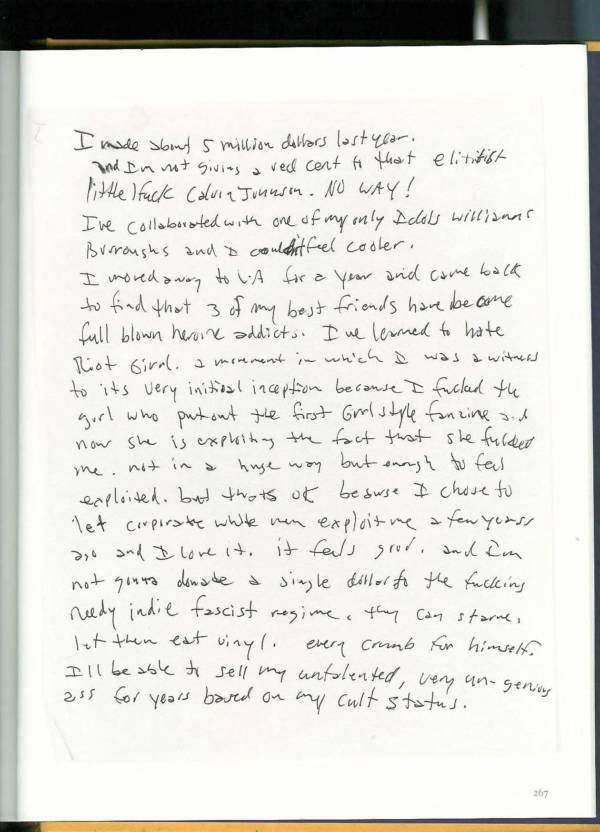 I made about 5 million dollars last year.
and I'm not giving a red cent to that elititist
little fuck Calvin Johnson. NO WAY!
I've collaborated with one of my only Idols William S
Burroughs and I couldn't feel cooler.
I moved away to L.A for a year and came back
to find that 3 of my best friends have become
full blown heroine addicts. I've learned to hate
Riot Girrl. a movement in which I was a witness
to its very initial inception because I fucked the
girl who put out the first Grrl style fanzine and
now she is exploiting the fact that she fucked
me. not in a huge way but enough to feel
exploited. but thats OK because I chose to
let corporate white men exploit me a few years
ago and I love it. it feels good. and I'm
not gonna donate a single dollar to the fucking
needy indie fascist regime. they can starve.
let them eat vinyl. every crumb for himself.
I'll be able to sell my untalented, very un-genius
ass for years based on my cult status.
267